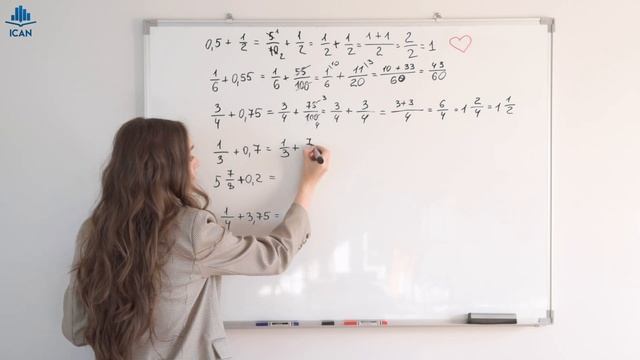 ICAN
0,5 + 1/2 = 5¹/10₂ + 1/2 = 1/2 + 1/2 = 1+1/2 = 2/2 = 1
1/6 + 0,55 = 1/6 + 55/100 = 1/6 ¹⁰ + 11/20 ³ = 10+33/60 = 43/60
3/4 + 0,75 = 3/4 + 75³/100₄ = 3/4 + 3/4 = 3+3/4 = 6/4 = 1 2/4 = 1 1/2
1/3 + 0,7 = 1/3 + 7
5 7/8 + 0,2 =
1/4 + 3,75 =